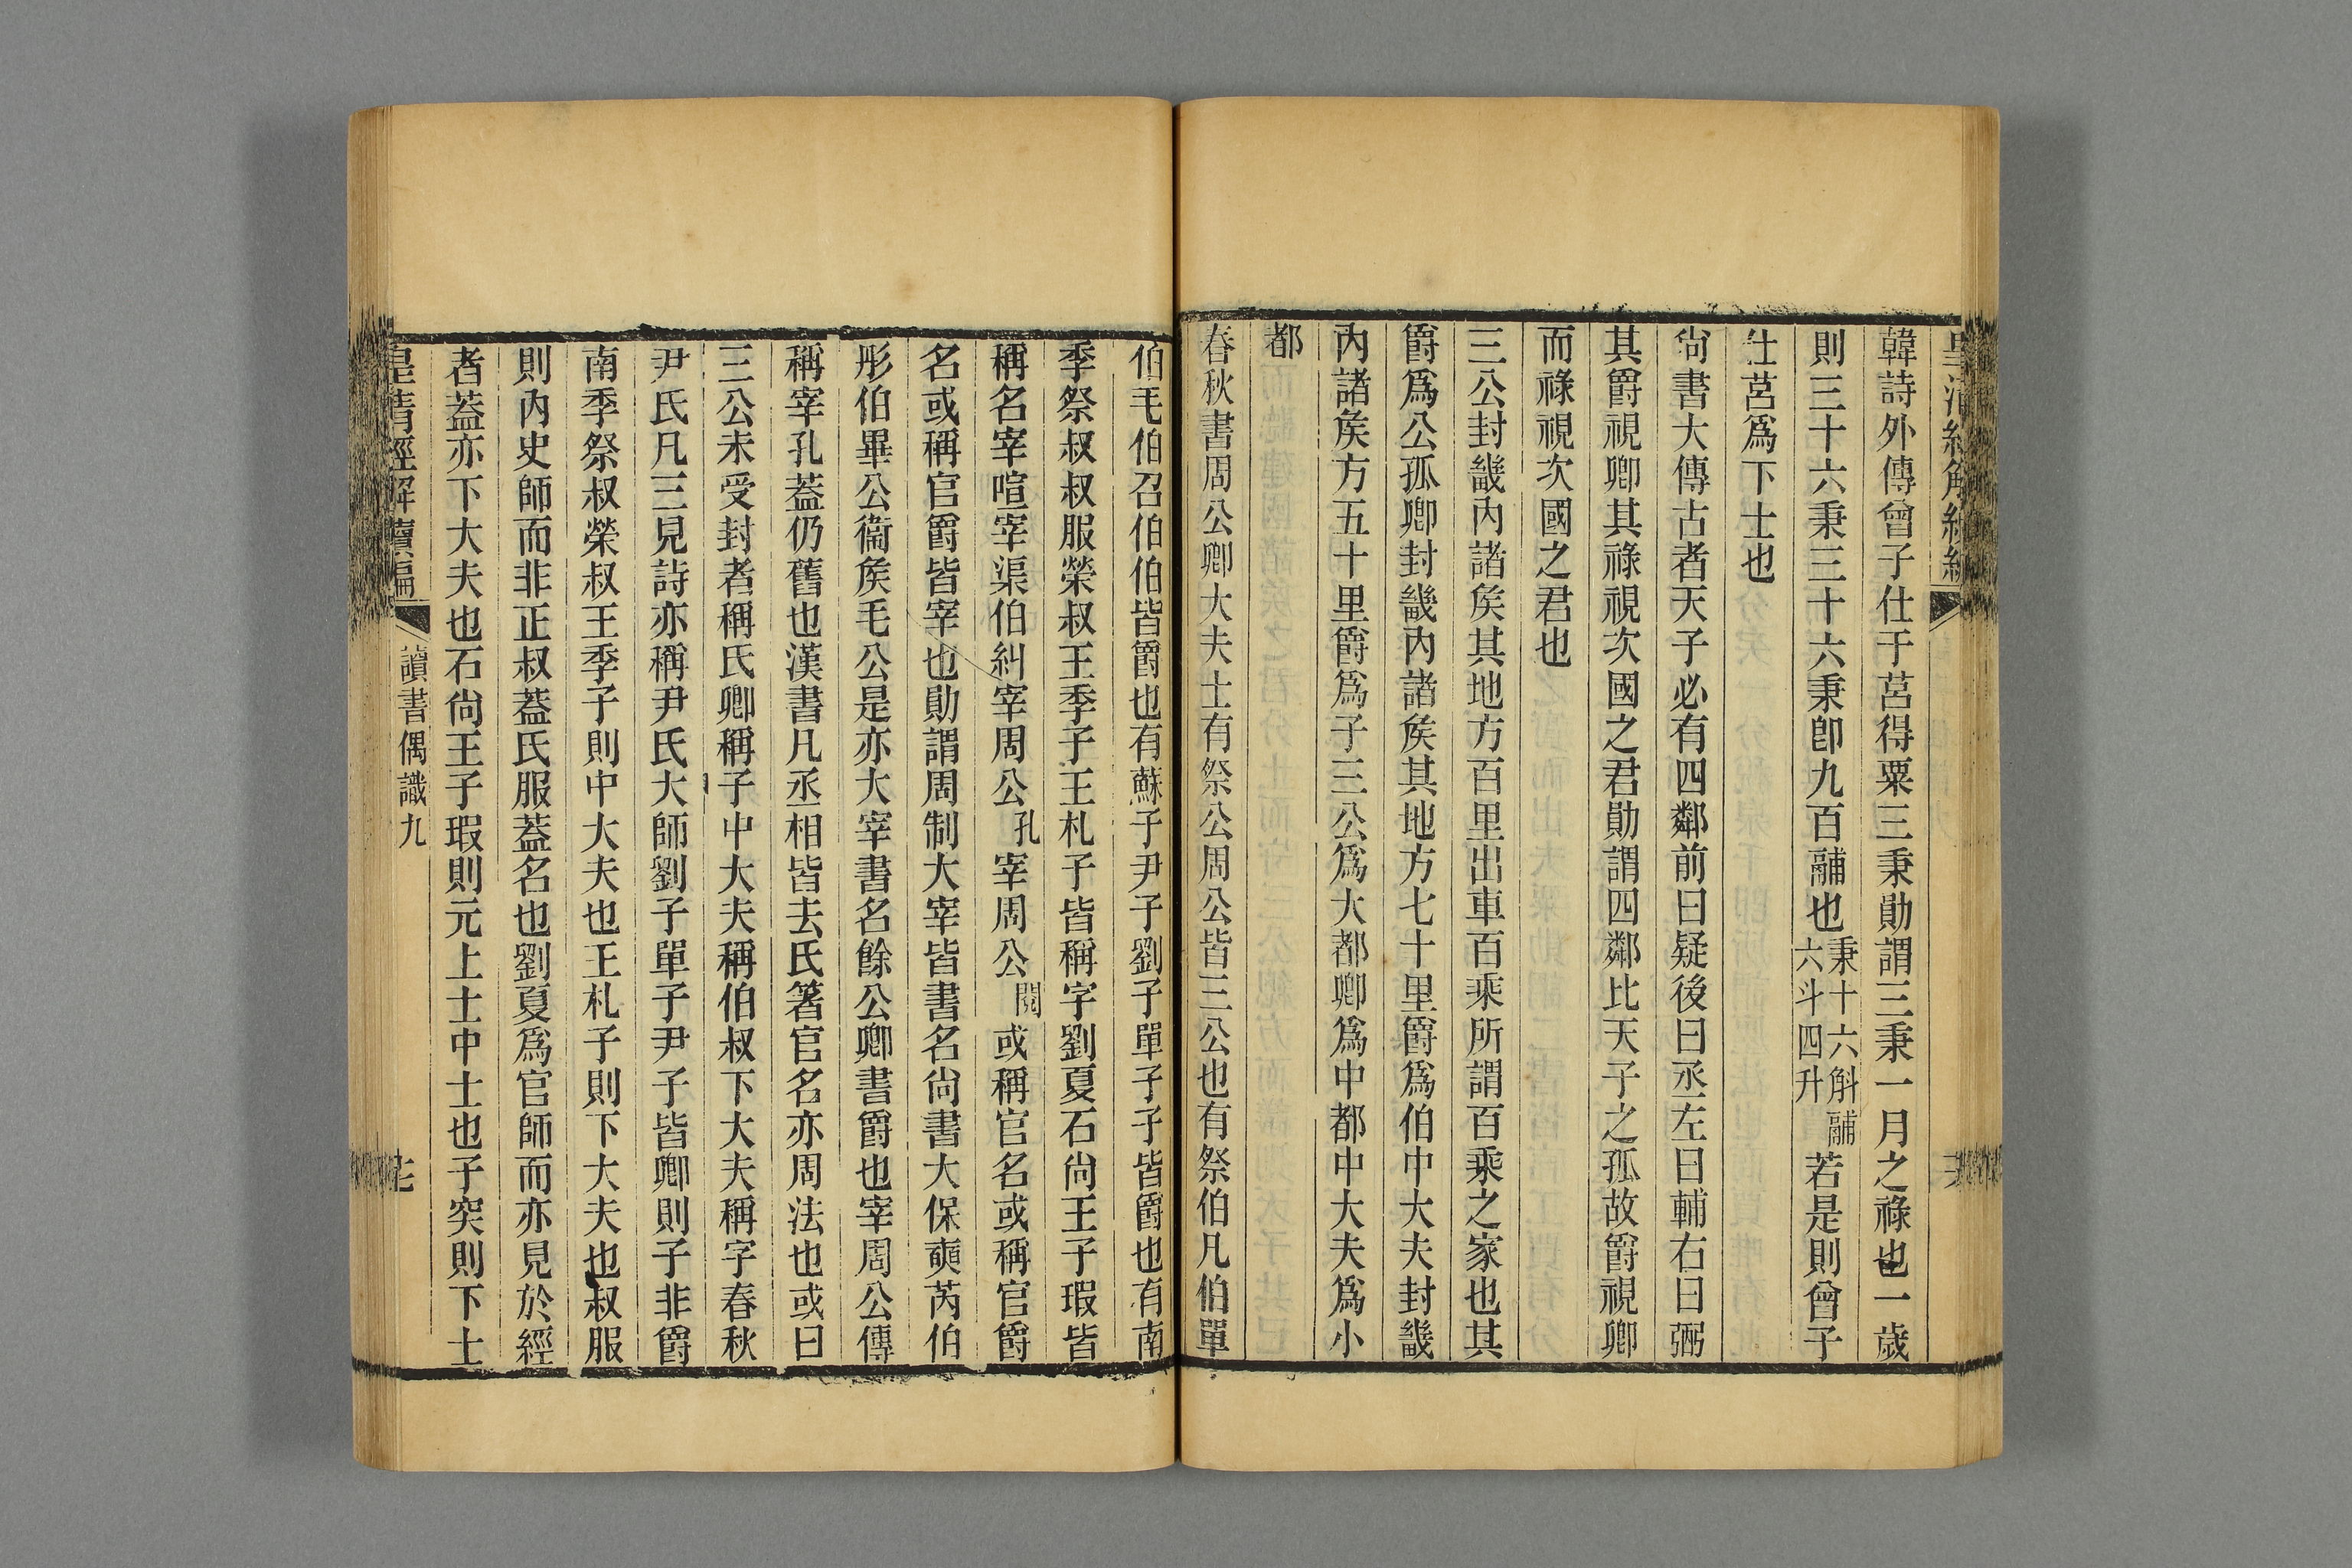 韓詩外傳曾子仕于莒得粟三秉勛謂三秉一月之祿也一歲
則三十六秉三十六秉卽九百鬴也秉十六斛鬴六斗四升若是則曾子
仕莒爲下士也
尙書大傳古者天子必有四鄰前曰疑後曰丞左曰輔右曰弼
其爵視卿其祿視次國之君勛謂四鄰比天子之孤故爵視卿
而祿視次國之君也
三公封畿內諸矦其地方百里出車百乘所謂百乘之家也其
爵爲公孤卿封畿內諸矦其地方七十里爵爲伯中大夫封畿
內諸矦方五十里爵爲子三公爲大都卿爲中都中大夫爲小
都
春秋書周公卿大夫士有祭公周公皆三公也有祭伯凡伯單
伯毛伯召伯伯皆爵也有蘇子尹子劉子單子子皆爵也有南
季祭叔叔服榮叔王季子王札子皆稱字劉夏石尙王子瑕皆
稱名宰咺宰渠伯糾宰周公孔宰周公閱或稱官名或稱官爵
名或稱官爵皆宰也勛謂周制大宰皆書名尙書大保奭芮伯
彤伯畢公衞矦毛公是亦大宰書名餘公卿書爵也宰周公傳
稱宰孔蓋仍舊也漢書凡丞相皆去氏箸官名亦周法也或曰
三公未受封者稱氏卿稱子中大夫稱伯叔下大夫稱字春秋
尹氏凡三見詩亦稱尹氏大師劉子單子尹子皆卿則子非爵
南季祭叔榮叔王季子則中大夫也王札子則下大夫也叔服
則內史師而非正叔蓋氏服蓋名也劉夏爲官師而亦見於經
者蓋亦下大夫也石尙王子瑕則元上士中士也子突則下士
皇清經解續編
讀書偶識九